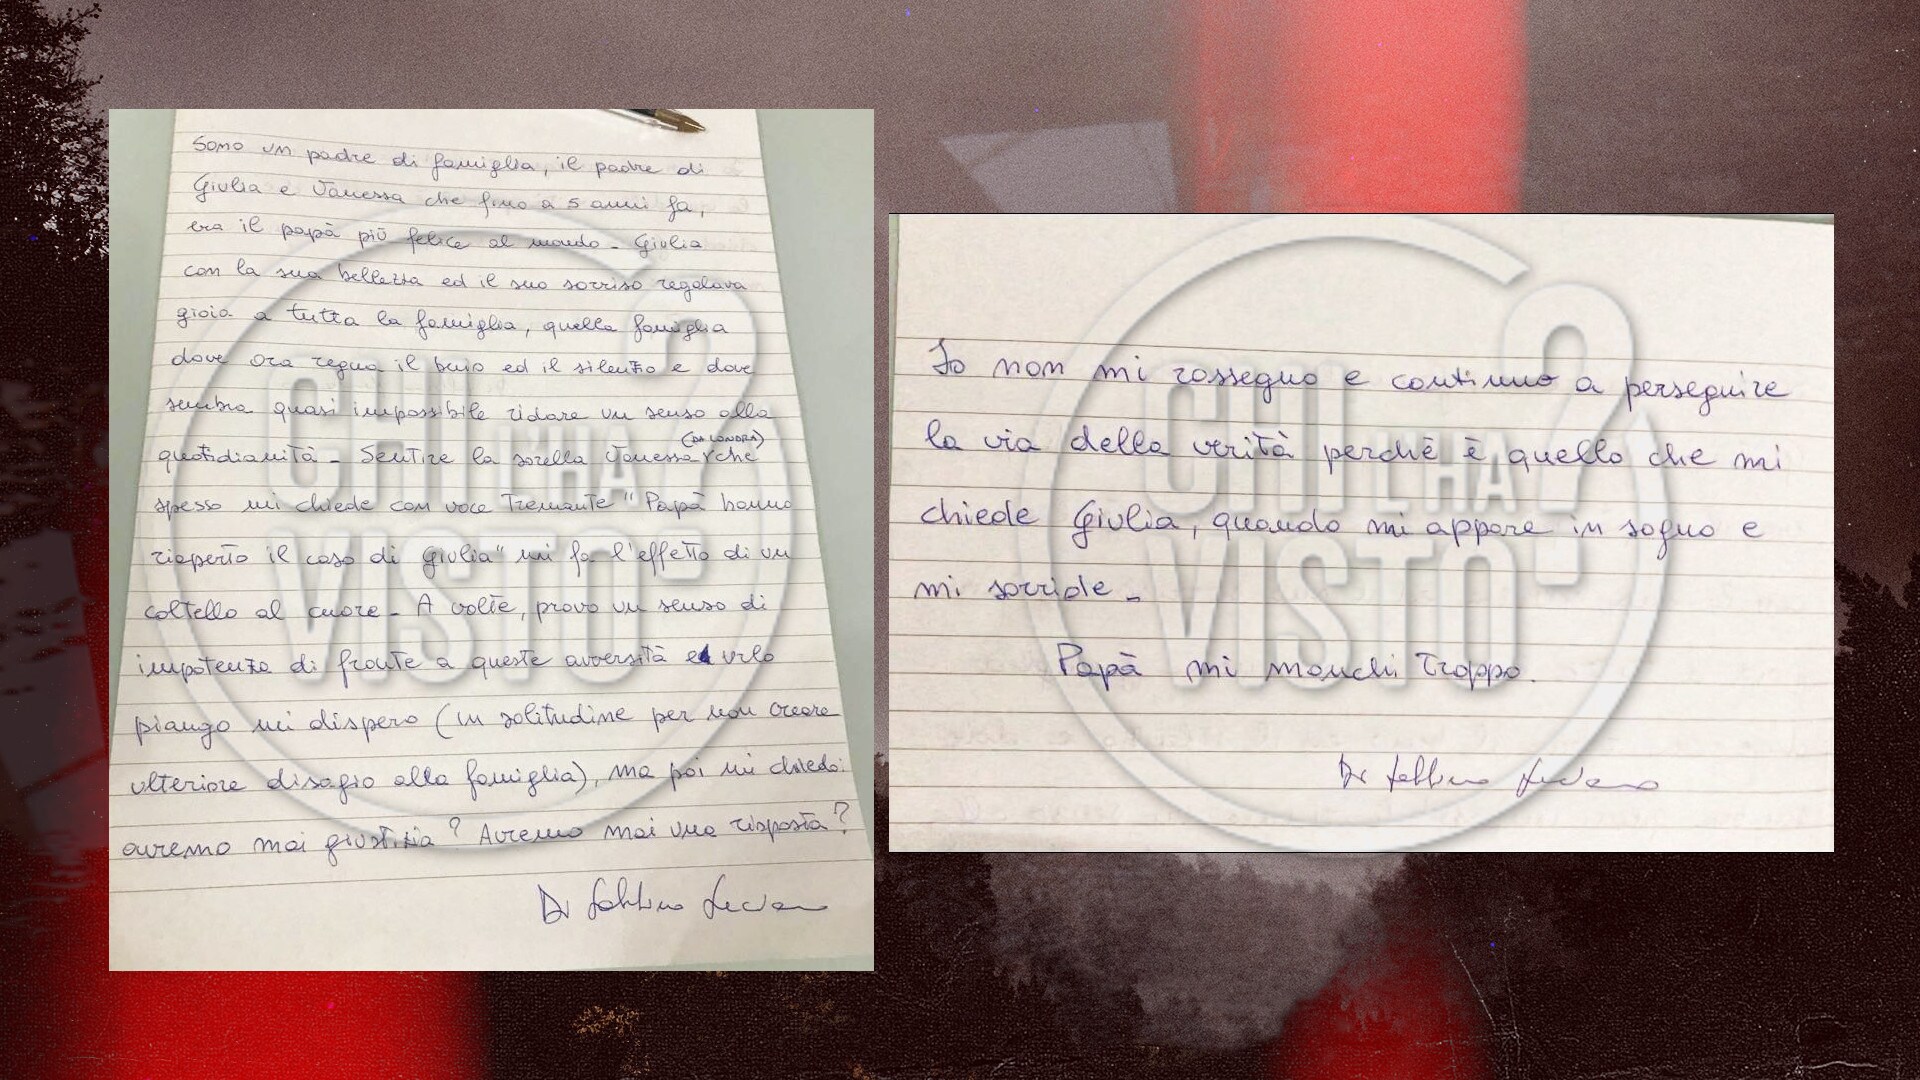 Sono un padre di famiglia, il padre di
Giulia e Vanessa che fino a 5 anni fa,
era il papà più felice al mondo - Giulia
con la sua bellezza ed il suo sorriso regalava
gioia a tutta la famiglia, quella famiglia
dove ora regna il buio ed il silenzio e dove
sembra quasi impossibile ridare un senso alla
quotidianità - Sentire la sorella Vanessa (DA LONDRA) che
spesso mi chiede con voce tremante "Papà hanno
riaperto il caso di Giulia" mi fa l'effetto di un
coltello al cuore - A volte, provo un senso di
impotenza di fronte a queste avversità ed urlo
piango mi dispero (in solitudine per non creare
ulteriore disagio alla famiglia), ma poi mi chiedo:
avremo mai giustizia? Avremo mai una risposta?
Di Sabbino Luciano
Io non mi rassegno e continuo a perseguire
la via della verità perchè è quello che mi
chiede Giulia, quando mi appare in sogno e
mi sorride -
Papà mi manchi troppo.
Di Sabbino Luciano
CHI L'HA VISTO?
CHI L'HA VISTO?